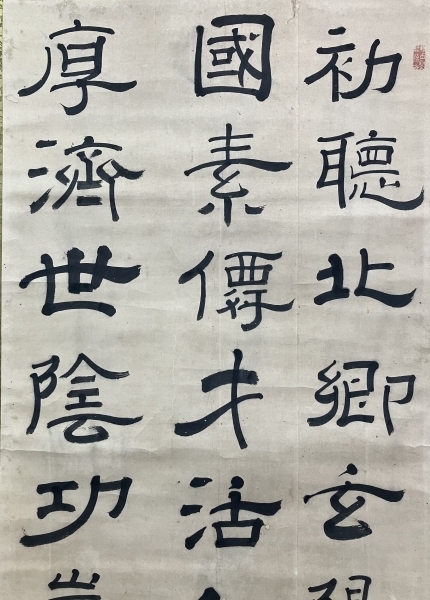 初聽北卿玄
國素僊才活
厚濟世陰功